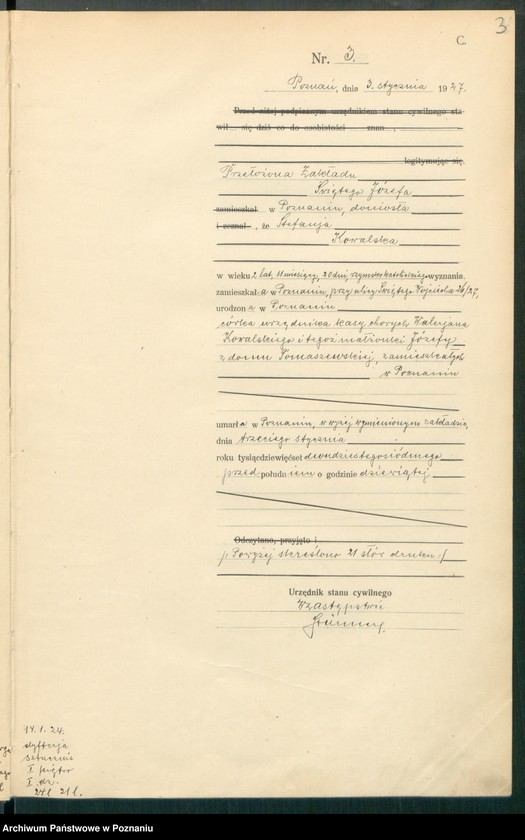 3
C.
Nr. 3.
Poznań, dnia 3. stycznia 1927.
Przed niżej podpisanym urzędnikiem stanu cywilnego sta-
wił się dziś co do osobistości znan ,
legitymując się.
Przełożona Zakładu
Świętego Józefa
zamieszkał w Poznaniu, doniosła
i zeznał , że Stefanja
Kowalska
w wieku 2 lat, 11 miesięcy, 20 dni, rzymskokatolickiego wyznania,
zamieszkał a w Poznaniu, przy ulicy Świętego Wojciecha 26/27,
urodzon a w Poznaniu
córka urzędnika kasy chorych Walerjana
Kowalskiego i tegoż małżonki Józefy
z domu Tomaszewskiej, zamieszkałych
w Poznaniu
umarł a w Poznaniu, w wyżej wymienionym zakładzie,
dnia trzeciego stycznia
roku tysiącdziewięćset dwudziestegosiódmego
przed połuda iem o godzinie dziewiątej
Odczytano, przyjęto i
/: Powyżej skreślono 21 słów druku :/
Urzędnik stanu cywilnego
W zastępstwie
14. 1. 24.
dyfterja
I piętro
I dz.
24 l. 21 l.
Archiwum Państwowe w Poznaniu